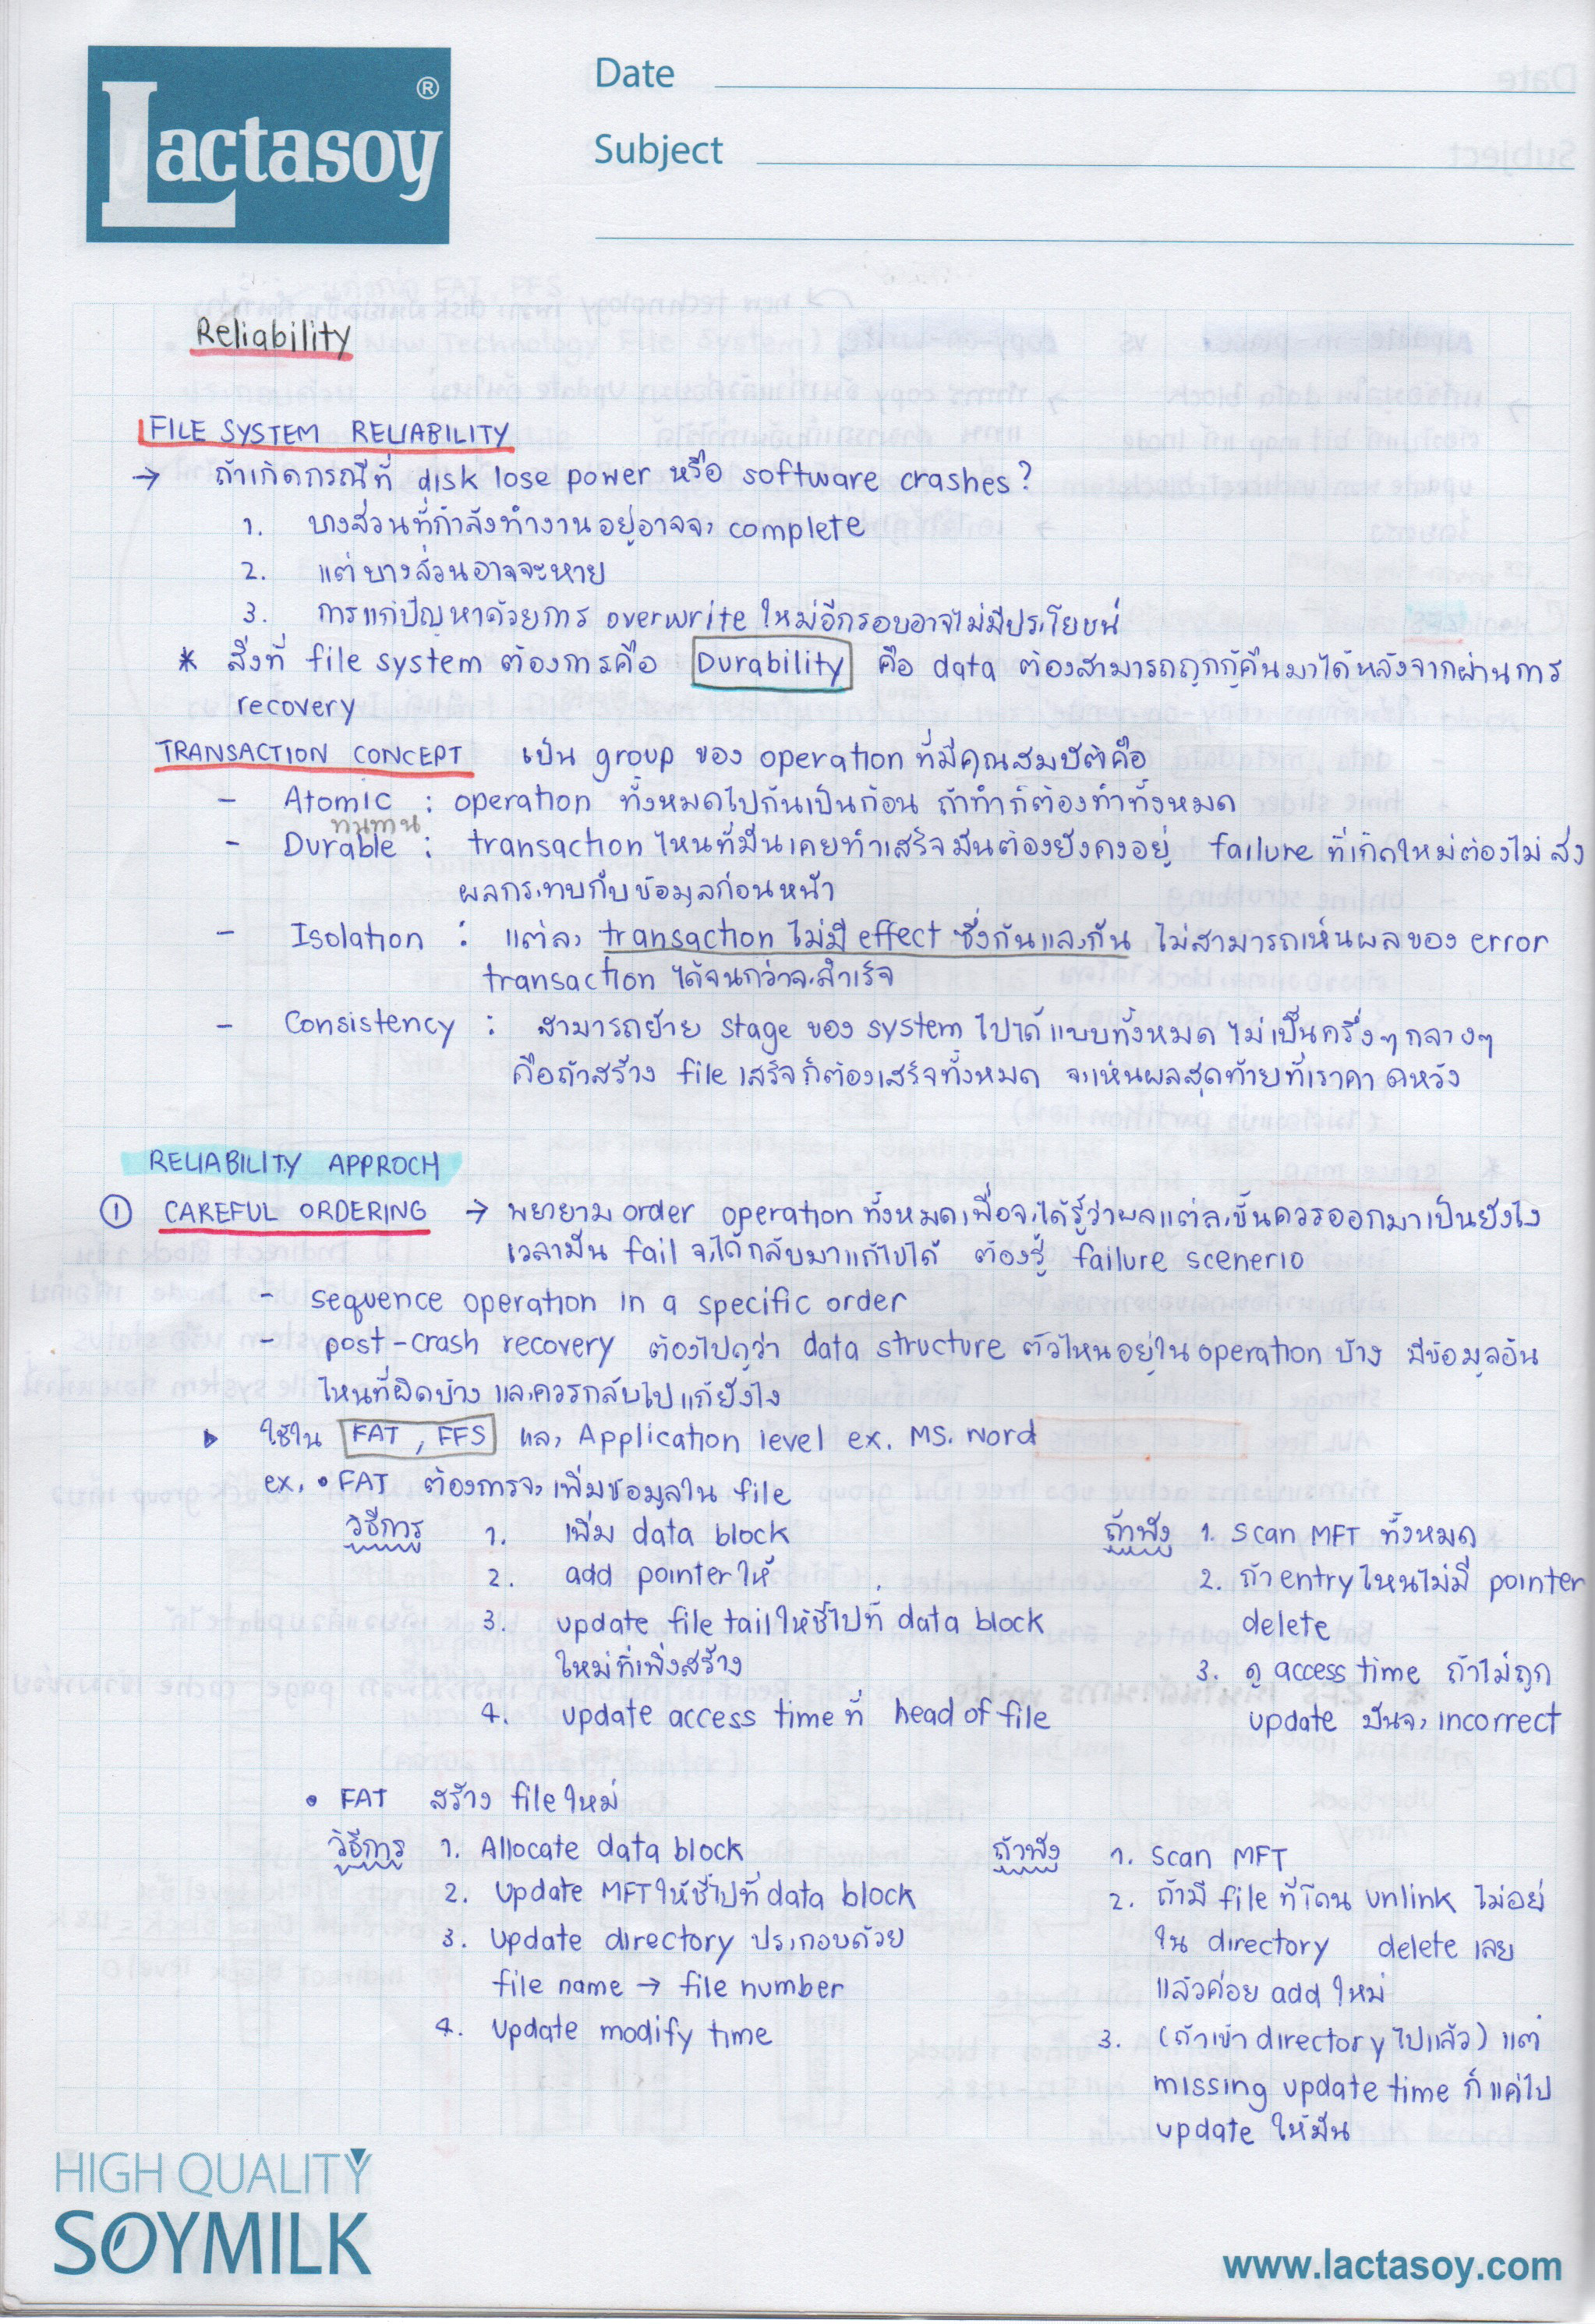 Lactasoy ®
Date
Subject
Reliability
FILE SYSTEM RELIABILITY
→ ถ้าเกิดกรณีที่ disk lose power หรือ software crashes?
1. บางส่วนที่กำลังทำงานอยู่อาจจะ complete
2. แต่บางส่วนอาจจะหาย
3. การแก้ปัญหาด้วยการ overwrite ใหม่อีกรอบอาจไม่มีประโยชน์
* สิ่งที่ file system ต้องการคือ Durability คือ data ต้องสามารถถูกกู้คืนมาได้หลังจากผ่านการ
recovery
TRANSACTION CONCEPT เป็น group ของ operation ที่มีคุณสมบัติคือ
- Atomic : operation ทั้งหมดไปกันเป็นก้อน ถ้าทำก็ต้องทำทั้งหมด
ทนทาน
- Durable : transaction ไหนที่มันเคยทำเสร็จมันต้องยังคงอยู่ failure ที่เกิดใหม่ต้องไม่ส่ง
ผลกระทบกับข้อมูลก่อนหน้า
- Isolation : แต่ละ transaction ไม่มี effect ซึ่งกันและกัน ไม่สามารถเห็นผลของ error
transaction ได้จนกว่าจะสำเร็จ
- Consistency : สามารถย้าย stage ของ system ไปได้แบบทั้งหมด ไม่เป็นครึ่งๆ กลางๆ
คือถ้าสร้าง file เสร็จก็ต้องเสร็จทั้งหมด จะเห็นผลสุดท้ายที่เราคาดหวัง
RELIABILITY APPROCH
① CAREFUL ORDERING → พยายาม order operation ทั้งหมดเพื่อจะได้รู้ว่าผลแต่ละขั้นควรออกมาเป็นยังไง
เวลามัน fail จะได้กลับมาแก้ไขได้ ต้องรู้ failure scenerio
- sequence operation in a specific order
- post-crash recovery ต้องไปดูว่า data structure ตัวไหนอยู่ใน operation บ้าง มีข้อมูลอัน
ไหนที่ผิดบ้าง และควรกลับไปแก้ยังไง
▸ ใช้ใน FAT, FFS และ Application level ex. MS. Word
ex. • FAT ต้องการจะเพิ่มข้อมูลใน file
วิธีการ 1. เพิ่ม data block
2. add pointer ให้
3. update file tail ให้ชี้ไปที่ data block
ใหม่ที่เพิ่งสร้าง
4. update access time ที่ head of file
ถ้าพัง 1. scan MFT ทั้งหมด
2. ถ้า entry ไหนไม่มี pointer
delete
3. ดู access time ถ้าไม่ถูก
update มันจะ incorrect
• FAT สร้าง file ใหม่
วิธีการ 1. Allocate data block
2. Update MFT ให้ชี้ไปที่ data block
3. Update directory ประกอบด้วย
file name → file number
4. Update modify time
ถ้าพัง 1. scan MFT
2. ถ้ามี file ที่โดน unlink ไม่อยู่
ใน directory delete เลย
แล้วค่อย add ใหม่
3. (ถ้าเข้า directory ไปแล้ว) แต่
missing update time ก็แค่ไป
update ให้มัน
HIGH QUALITY
SOYMILK
www.lactasoy.com